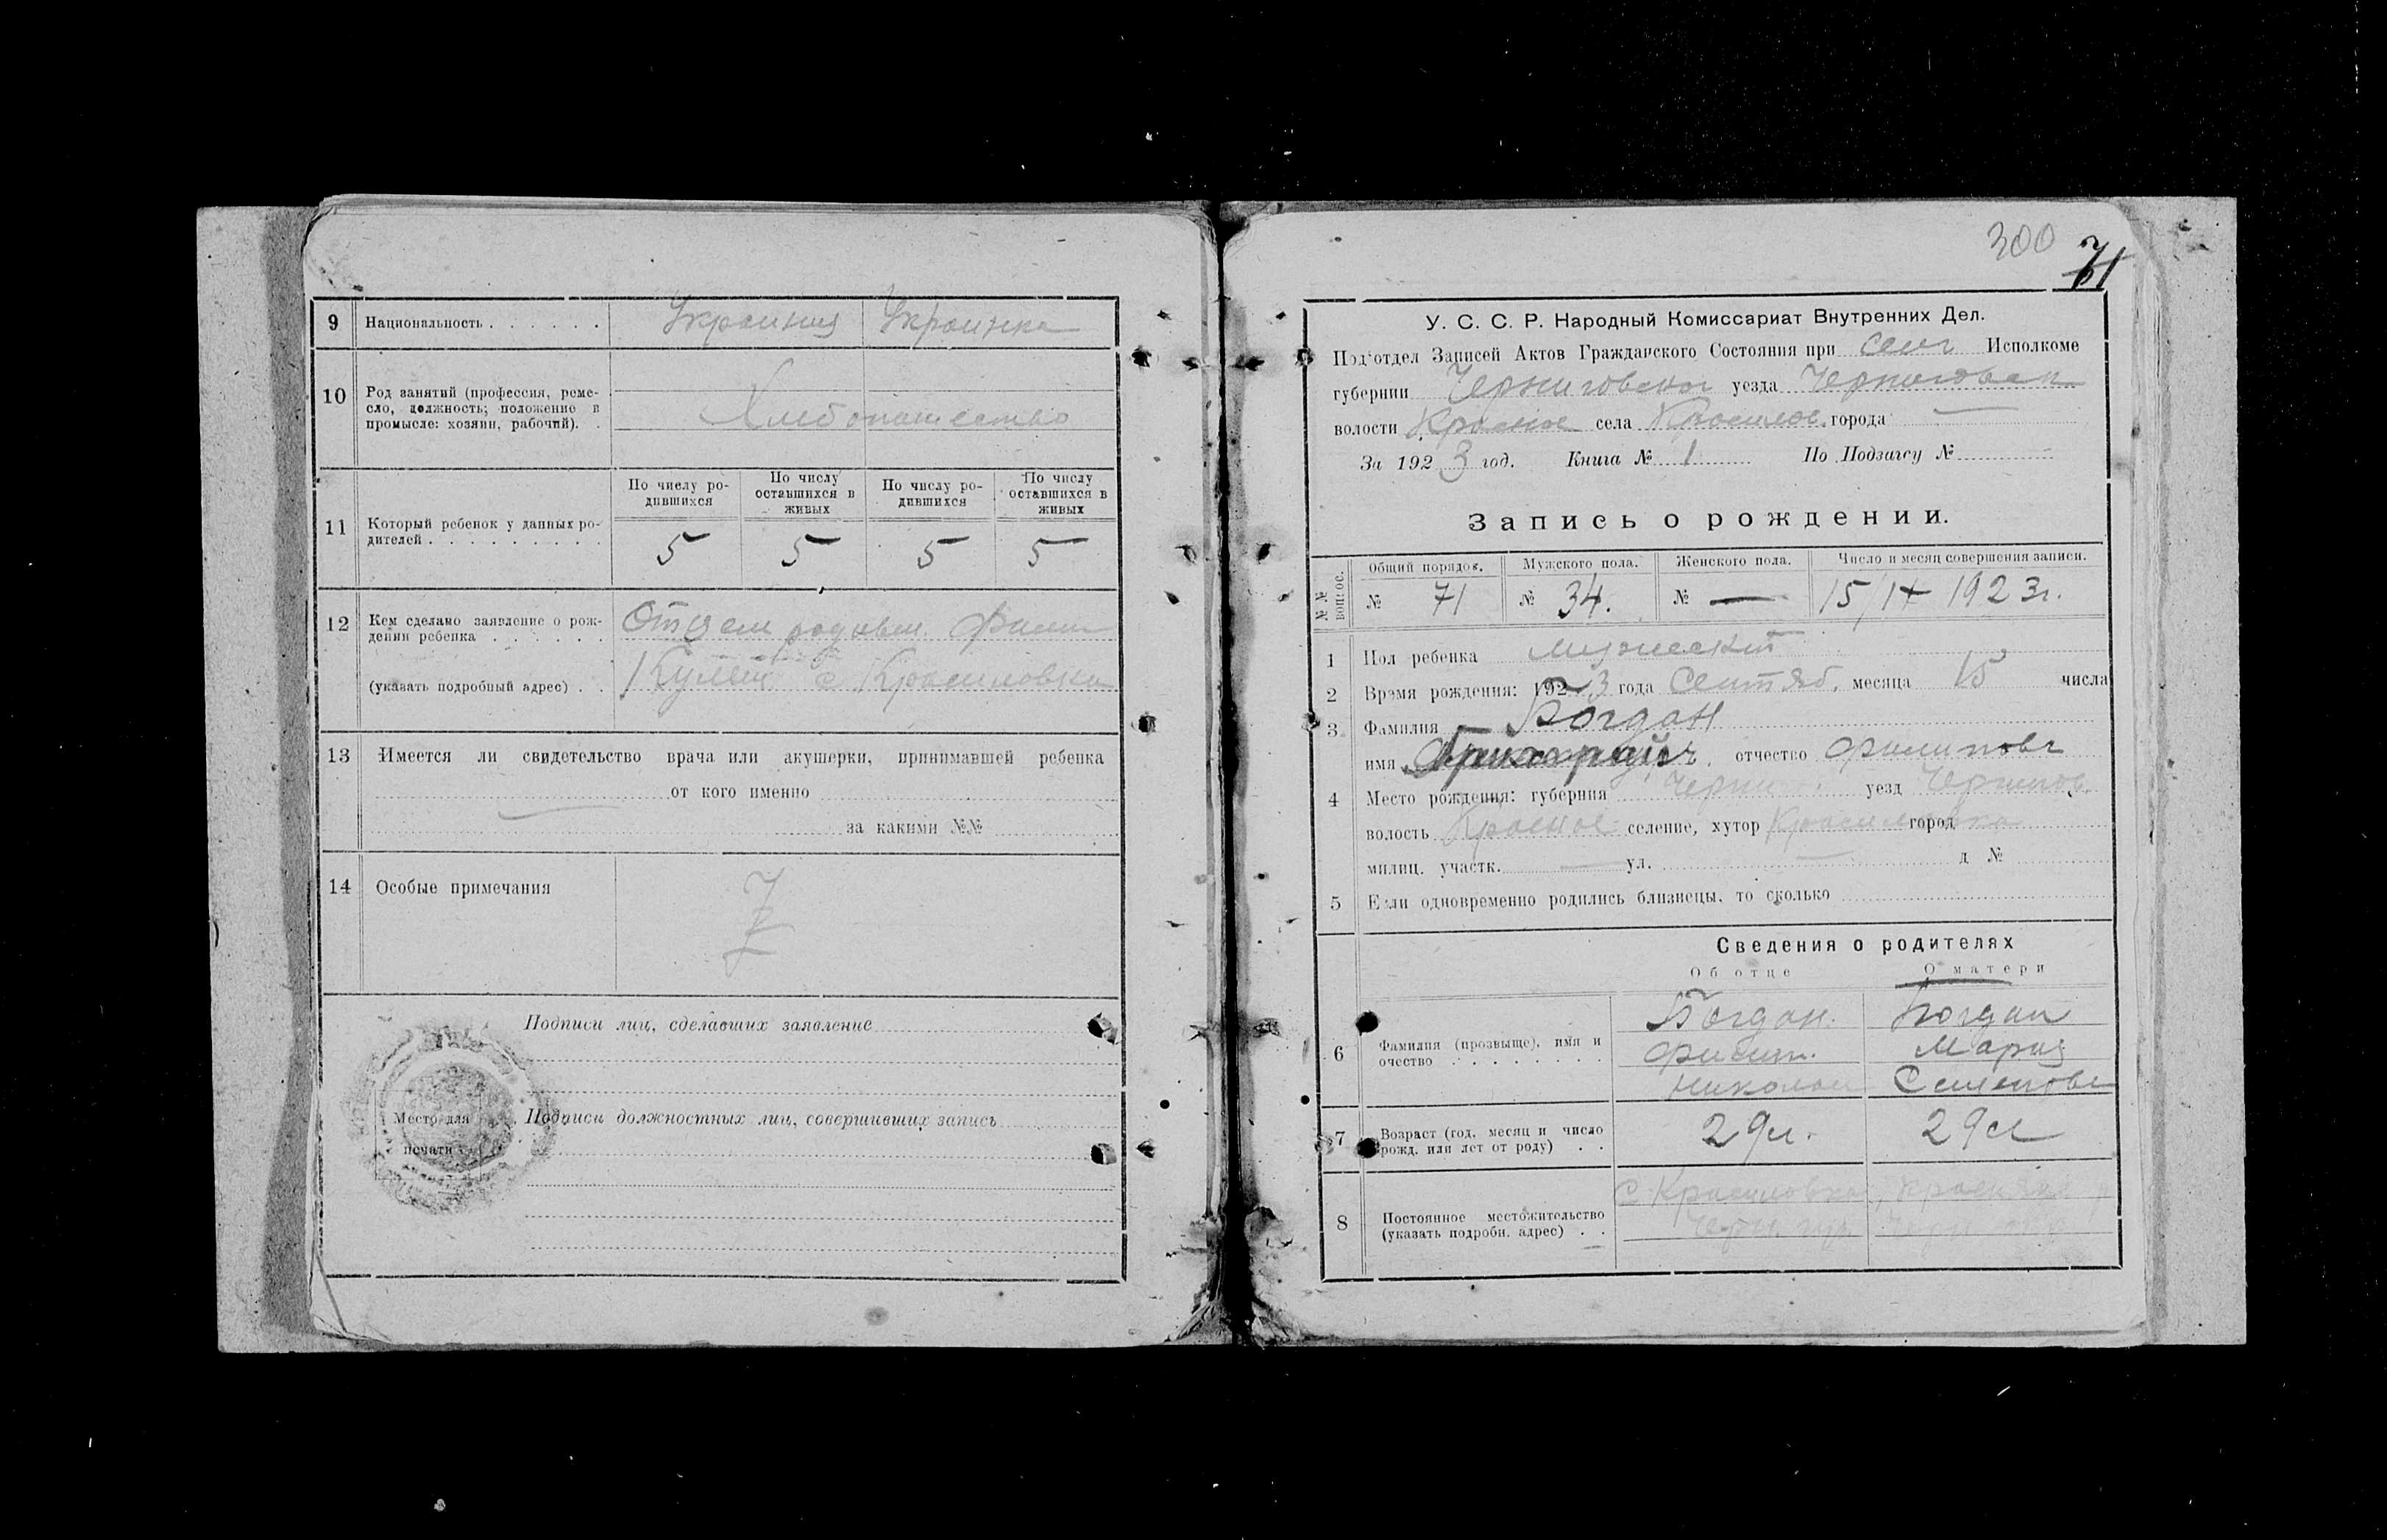 9 Национальность . . . . . . Украинец Украинка
10 Род занятий (профессия, реме-
сло, должность; положение в
промысле: хозяин, рабочий). .
Хлебопашество
По числу ро-
дившихся
По числу
оставшихся в
живых
По числу ро-
дившихся
По числу
оставшихся в
живых
11 Который ребенок у данных ро-
дителей . . . . . . . . .
5 5 5 5
12 Кем сделано заявление о рож-
дении ребенка . . . . . .
Отцем
(указать подробный адрес) . .
с Красиловка
13 Имеется ли свидетельство врача или акушерки, принимавшей ребенка
от кого именно
за какими №№
14 Особые примечания
Подписи лиц, сделавших заявление
Место для
печати
Подписи должностных лиц, совершивших запись
300
71
У. С. С. Р. Народный Комиссариат Внутренних Дел.
Под'отдел Записей Актов Гражданского Состояния при Исполкоме
губернии Черниговской уезда
волости села города
За 1923 год. Книга № 1 По Подзагсу №
Запись о рождении.
№№ вопрос.
Общий порядок. Мужского пола. Женского пола. Число и месяц совершения записи.
№ 71 № 34. № — 15/IX 1923г.
1 Пол ребенка мужеский
2 Время рождения: 1923 года Сентяб. месяца 15 числа
3 Фамилия Богдан
имя отчество Филипов
4 Место рождения: губерния уезд Чернигов
волость селение, хутор Красиловка город
милиц. участк. — ул. — д №
5 Если одновременно родились близнецы, то сколько
Сведения о родителях
Об отце О матери
6 Фамилия (прозвыще), имя и
очество . . . . . . . .
Богдан. Богдан
Филип. Мария
Николаи Семенов
7 Возраст (год, месяц и число
рожд. или лет от роду) . .
29л. 29л
8 Постоянное местожительство
(указать подробн. адрес) . .
с. Красиловка,